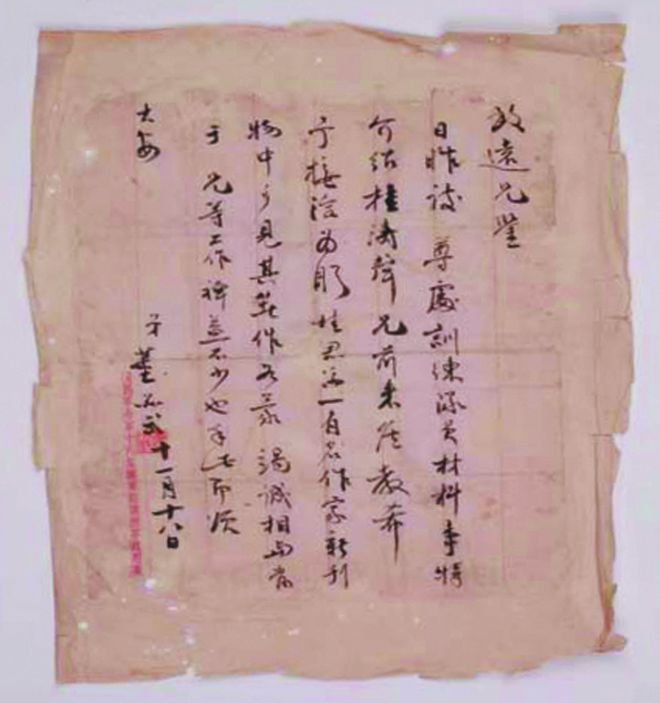 遠兄鑒
日昨談 尊處訓練派員材料事特
介紹桂濤聲兄前來 教希
予接洽為盼桂君為一有名作家新刊
物中多見其 作 竭誠相與當
于 兄等工作裨益不少也手此即頌
大安
弟董必武十一月十八日